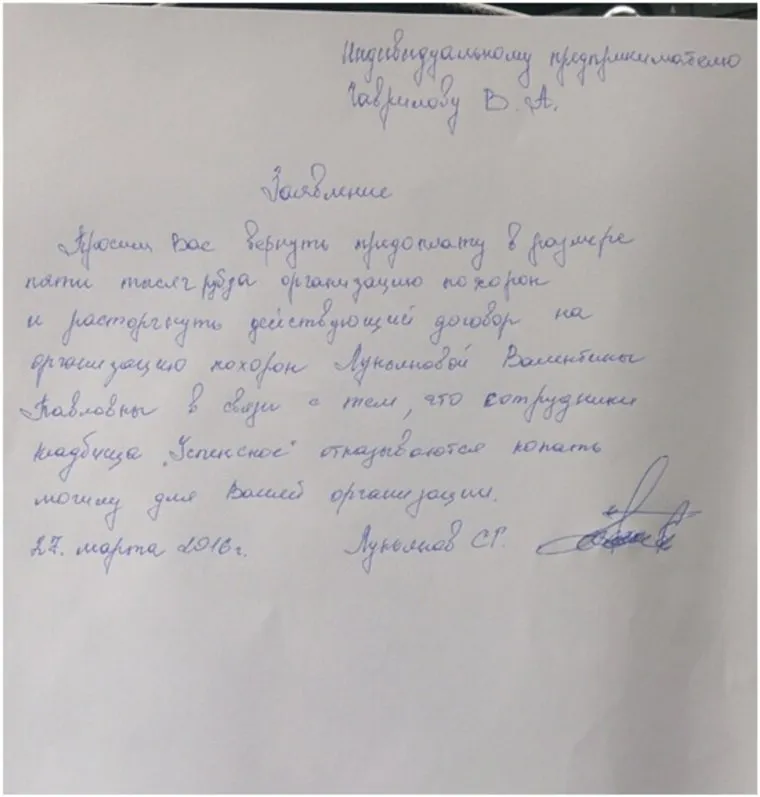 Индивидуальному предпринимателю
Гаврилову В. А.
Заявление
Просим Вас вернуть предоплату в размере
пяти тысяч руб за организацию похорон
и расторгнуть действующий договор на
организацию похорон Лукьяновой Валентины
Павловны в связи с тем, что сотрудники
кладбища "Успенское" отказываются копать
могилу для Вашей организации.
27. марта 2016 г. Лукьянов С.Г.